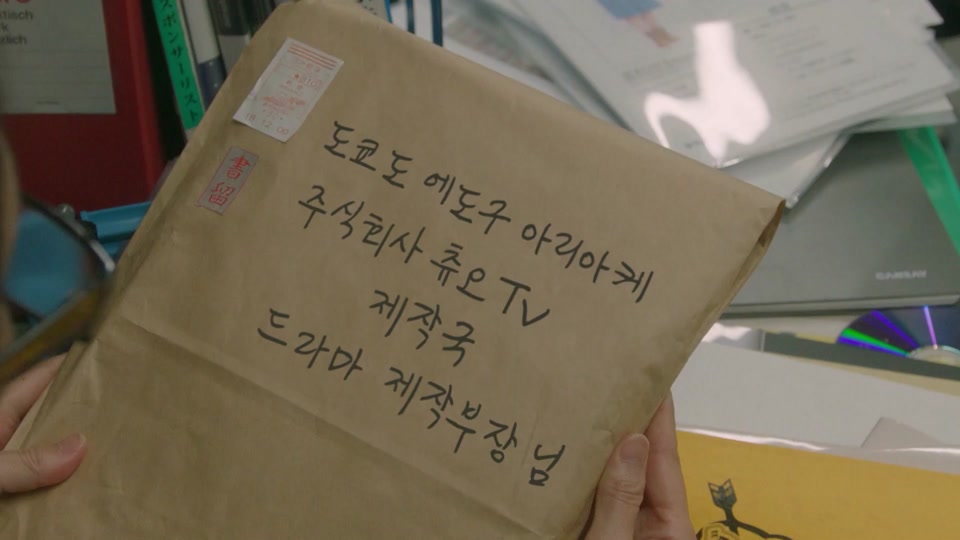 도쿄도 에도구 아리아케
주식회사 츄오 TV
제작국
드라마 제작부장 님
書留
スポンサーリスト